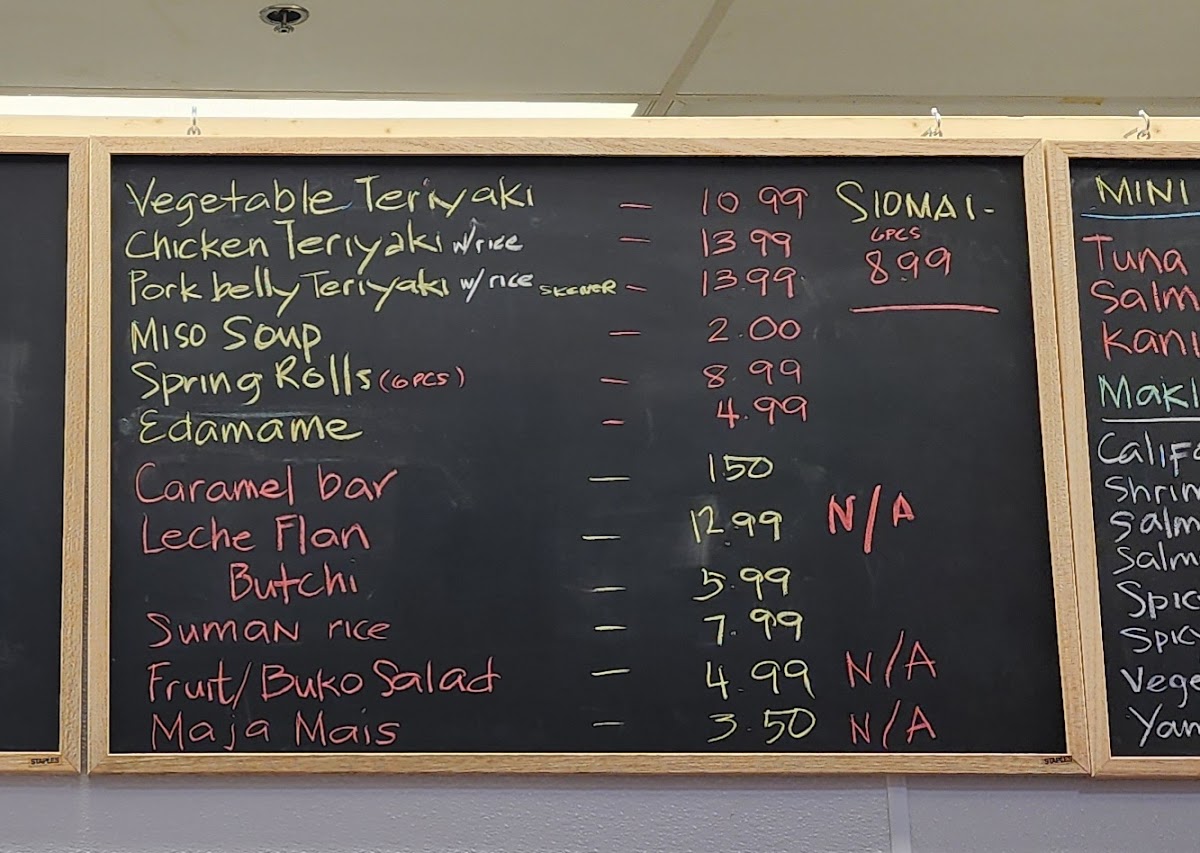 Vegetable Teriyaki - 10.99
Chicken Teriyaki w/rice - 13.99
Pork belly Teriyaki w/ rice SKEWER - 13.99
Miso Soup - 2.00
Spring Rolls (6PCS) - 8.99
Edamame - 4.99
Caramel bar - 150
Leche Flan - 12.99 N/A
Butchi - 5.99
Suman rice - 7.99
Fruit/Buko Salad - 4.99 N/A
Maja Mais - 3.50 N/A
SIOMAI-
6PCS
8.99
MINI
Tuna
Salm
Kani
Maki
Califo
Shrim
Salm
Salm
Spic
Spic
Vege
Yam
STAPLES
STAPLES